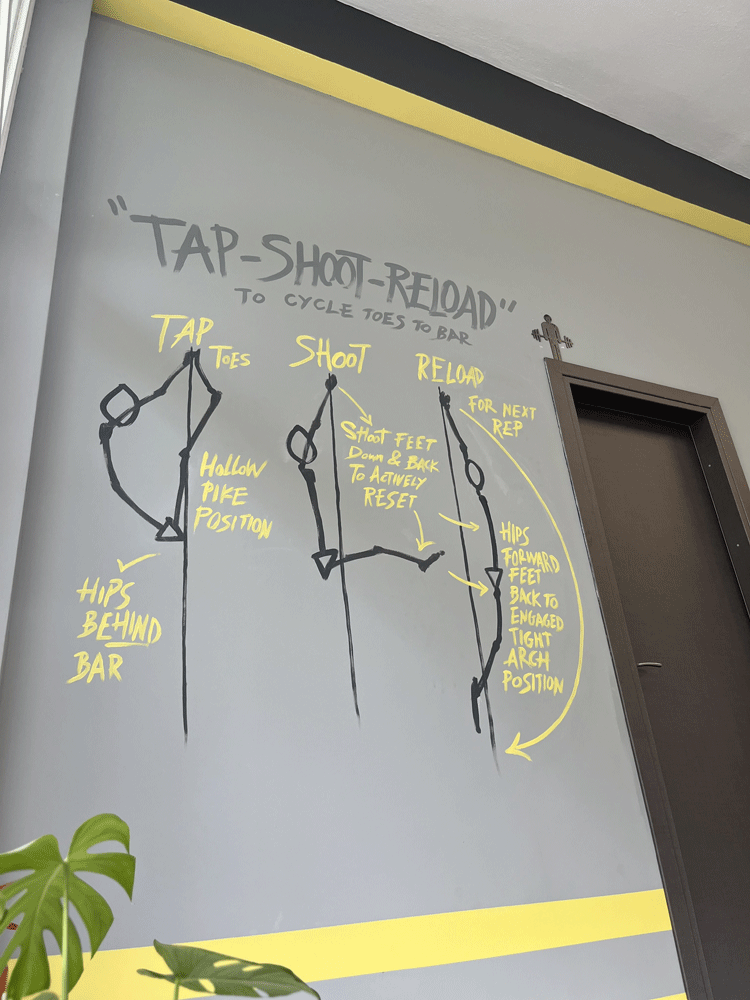 "TAP-SHOOT-RELOAD"
TO CYCLE TOES TO BAR
TAP
TOES
HOLLOW
PIKE
POSITION
HIPS
BEHIND
BAR
SHOOT
SHOOT FEET
DOWN & BACK
TO ACTIVELY
RESET
RELOAD
FOR NEXT
REP
HIPS
FORWARD
FEET
BACK TO
ENGAGED
TIGHT
ARCH
POSITION